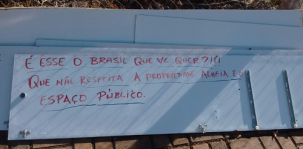 É ESSE O BRASIL QUE VC QUER ?!?!
QUE NÃO RESPEITA A PROPRIEDADE ALHEIA E O
ESPAÇO PÚBLICO.